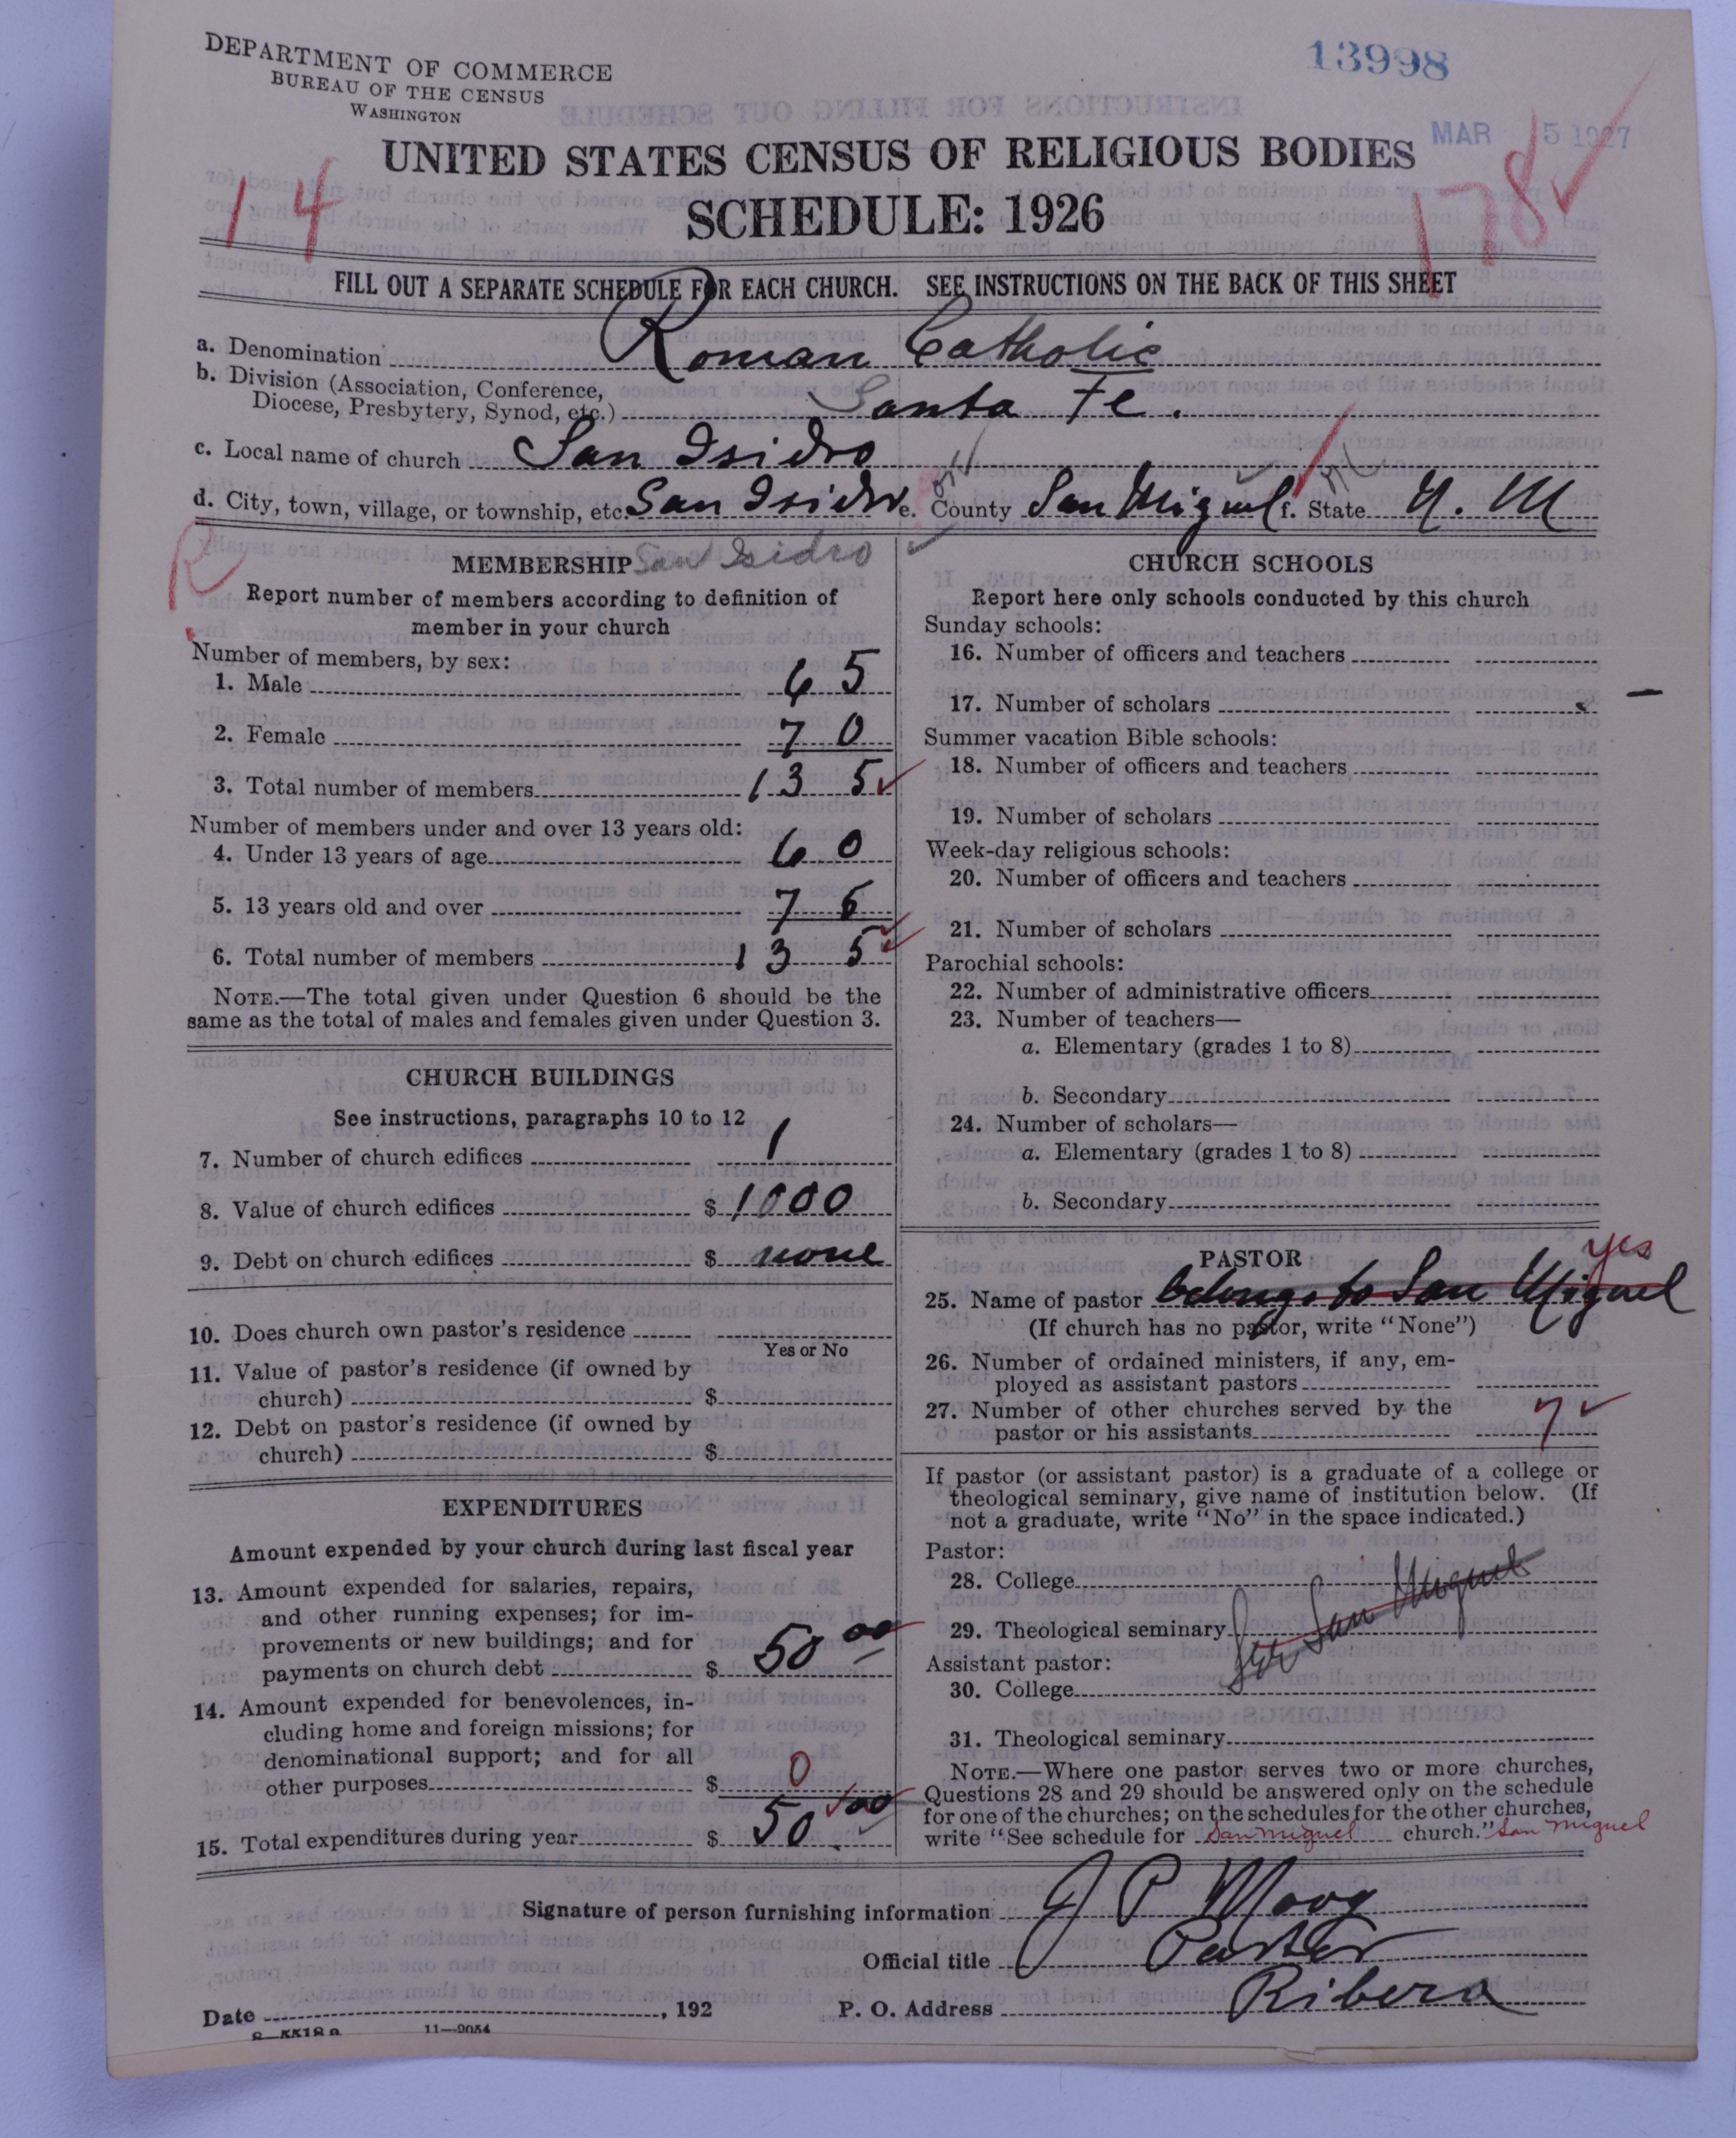 DEPARTMENT OF COMMERCE
BUREAU OF THE CENSUS
WASHINGTON
13998
MAR 5 1927
UNITED STATES CENSUS OF RELIGIOUS BODIES
SCHEDULE: 1926
14
178✓
FILL OUT A SEPARATE SCHEDULE FOR EACH CHURCH. SEE INSTRUCTIONS ON THE BACK OF THIS SHEET
a. Denomination Roman Catholic
b. Division (Association, Conference,
Diocese, Presbytery, Synod, etc.) Santa Fe.
c. Local name of church San Isidro
d. City, town, village, or township, etc. San Isidro e. County San Miguel f. State N. M
R
MEMBERSHIP San Isidro ✓
Report number of members according to definition of
member in your church
Number of members, by sex:
1. Male 65
2. Female 70
3. Total number of members 135 ✓
Number of members under and over 13 years old:
4. Under 13 years of age 60
5. 13 years old and over 75
6. Total number of members 135 ✓
NOTE.—The total given under Question 6 should be the
same as the total of males and females given under Question 3.
CHURCH BUILDINGS
See instructions, paragraphs 10 to 12
7. Number of church edifices 1
8. Value of church edifices $ 1000
9. Debt on church edifices $ none
10. Does church own pastor's residence
Yes or No
11. Value of pastor's residence (if owned by
church) $
12. Debt on pastor's residence (if owned by
church) $
EXPENDITURES
Amount expended by your church during last fiscal year
13. Amount expended for salaries, repairs,
and other running expenses; for im-
provements or new buildings; and for
payments on church debt $ 50 00
14. Amount expended for benevolences, in-
cluding home and foreign missions; for
denominational support; and for all
other purposes $ 0
15. Total expenditures during year $ 50 00
CHURCH SCHOOLS
Report here only schools conducted by this church
Sunday schools:
16. Number of officers and teachers
17. Number of scholars
Summer vacation Bible schools:
18. Number of officers and teachers
19. Number of scholars
Week-day religious schools:
20. Number of officers and teachers
21. Number of scholars
Parochial schools:
22. Number of administrative officers
23. Number of teachers—
a. Elementary (grades 1 to 8)
b. Secondary
24. Number of scholars—
a. Elementary (grades 1 to 8)
b. Secondary
PASTOR
yes
25. Name of pastor belongs to San Miguel
(If church has no pastor, write "None")
26. Number of ordained ministers, if any, em-
ployed as assistant pastors
27. Number of other churches served by the
pastor or his assistants 7 ✓
If pastor (or assistant pastor) is a graduate of a college or
theological seminary, give name of institution below. (If
not a graduate, write "No" in the space indicated.)
Pastor:
28. College
29. Theological seminary San Miguel
Assistant pastor:
30. College
31. Theological seminary
NOTE.—Where one pastor serves two or more churches,
Questions 28 and 29 should be answered only on the schedule
for one of the churches; on the schedules for the other churches,
write "See schedule for San Miguel church." San Miguel
Signature of person furnishing information J P Moog
Official title Pastor
Date , 192 P. O. Address Ribera
11—9054